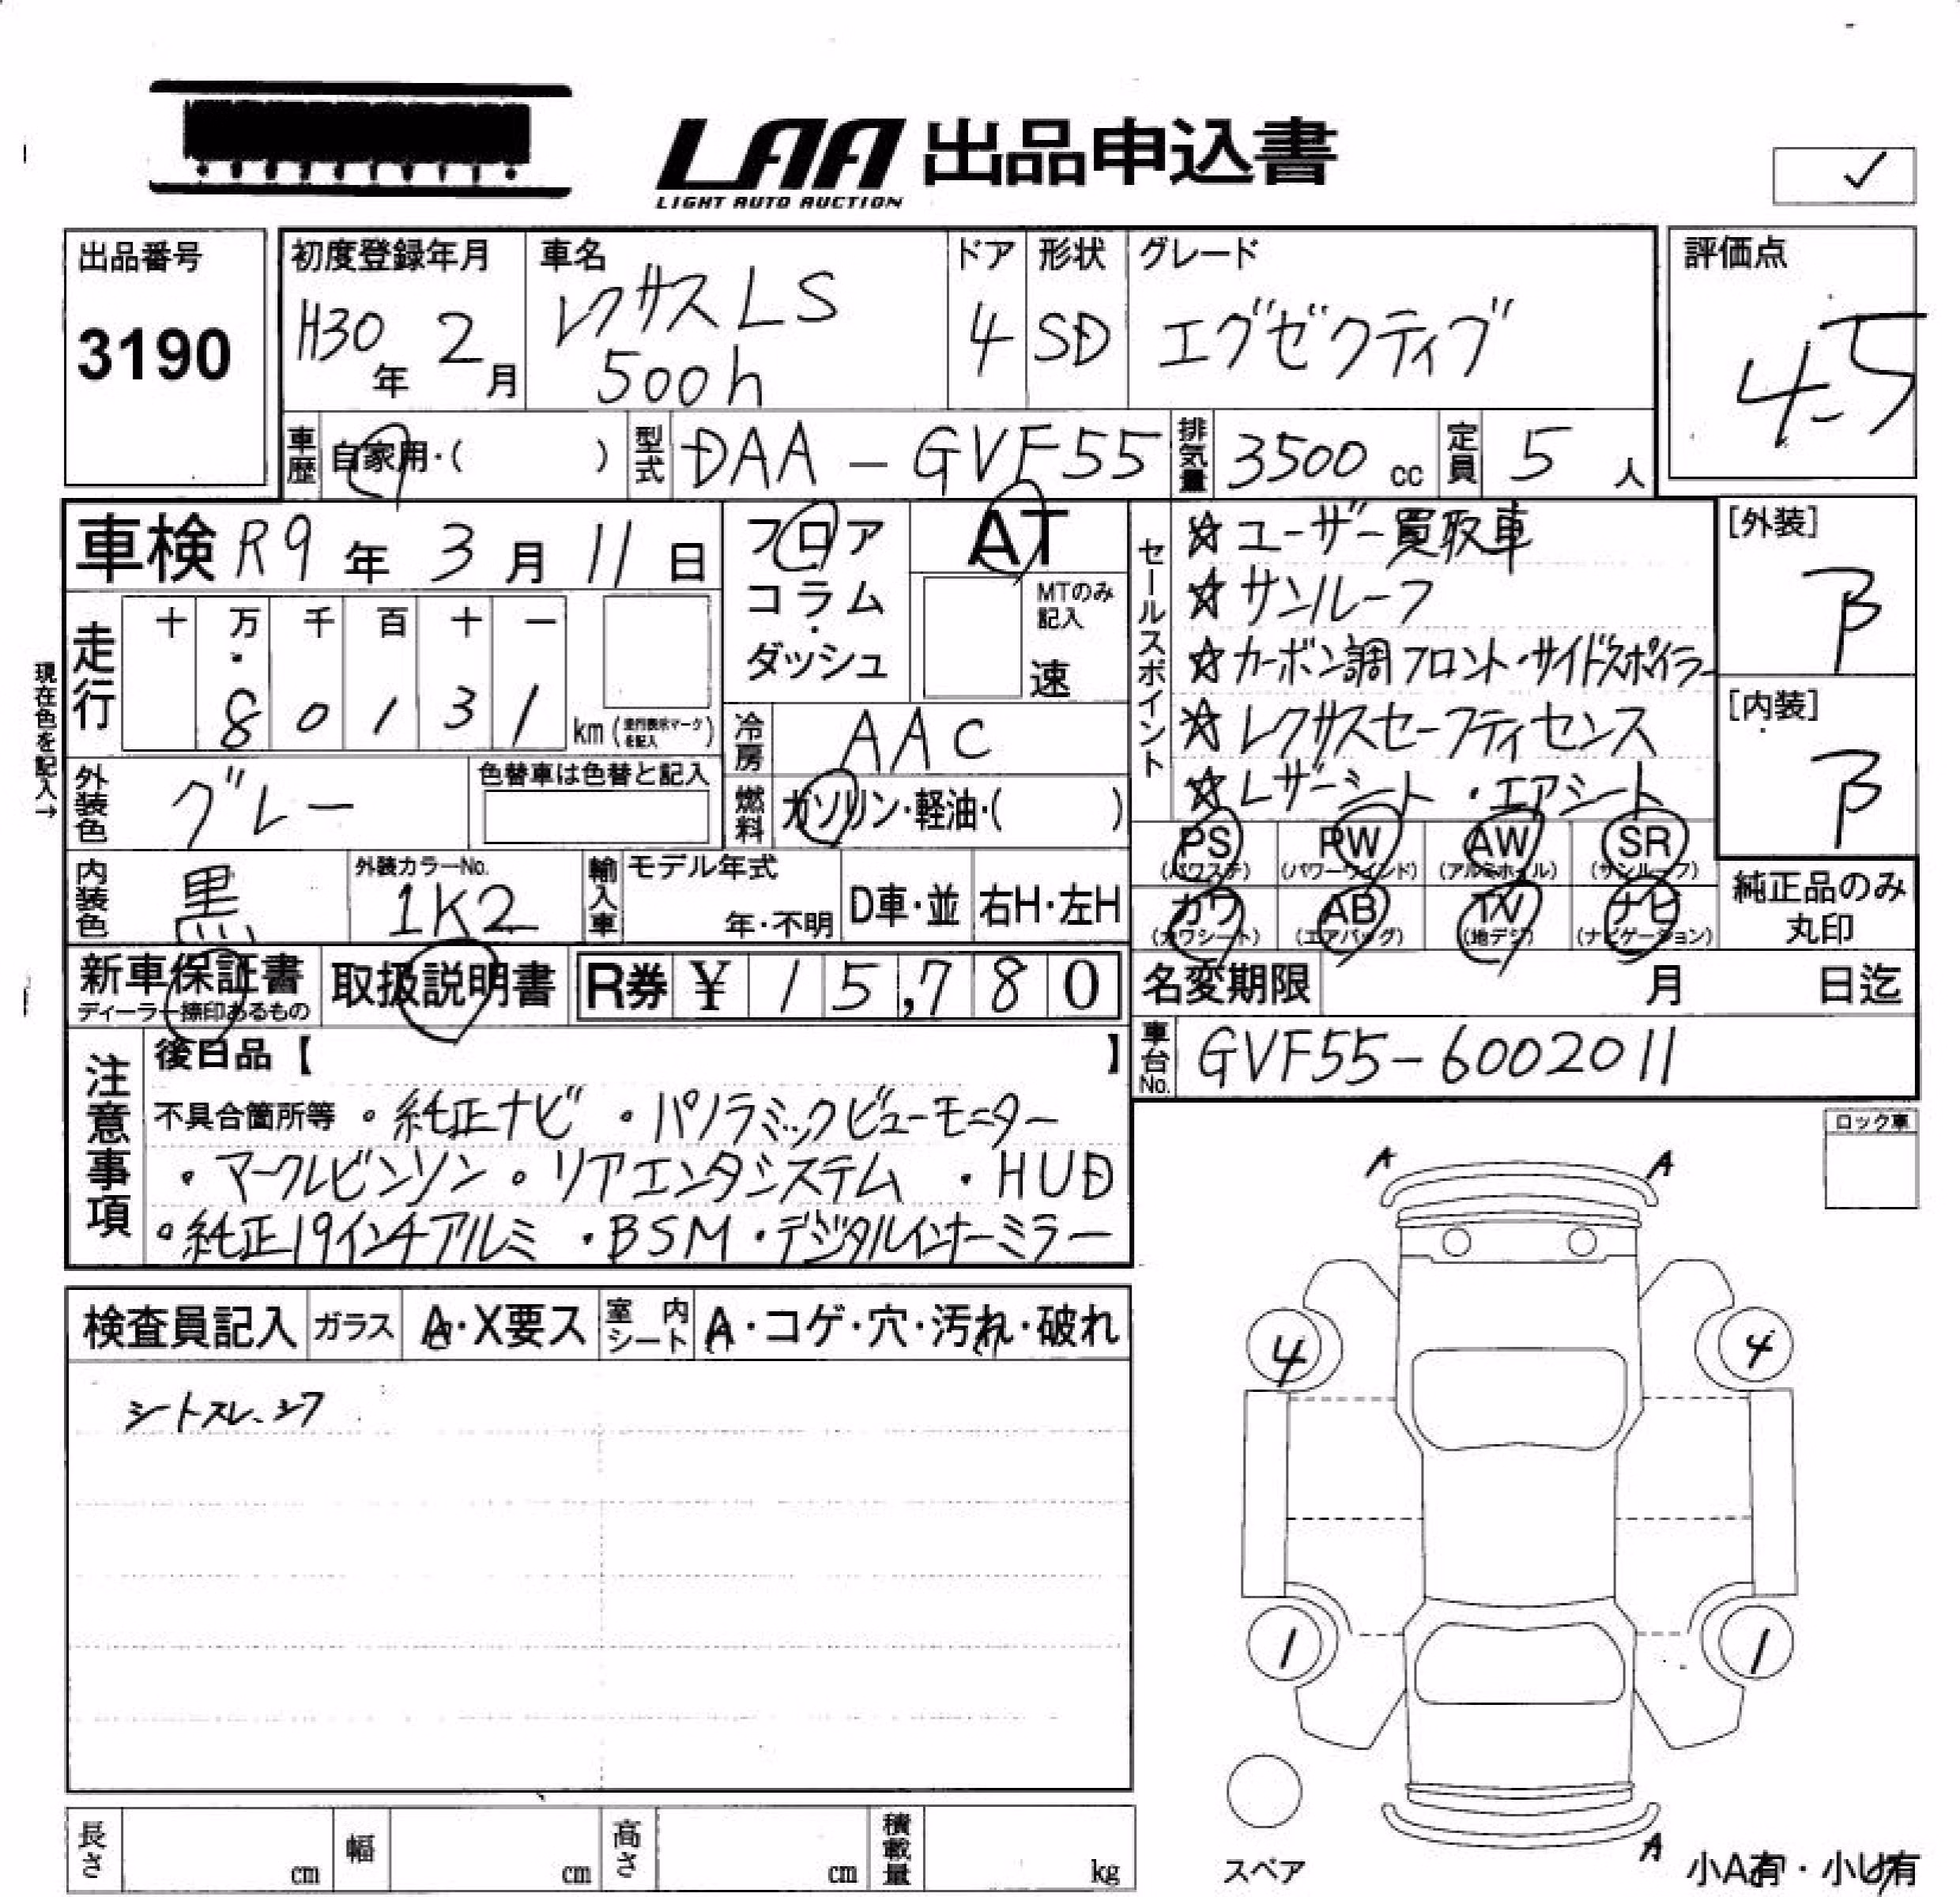 LAA 出品申込書
LIGHT AUTO AUCTION
✓
出品番号
3190
初度登録年月
H30年 2月
車名
レクサスLS
500h
ドア
4
形状
SD
グレード
エグゼクティブ
評価点
4.5
車歴 自家用・( )
型式 DAA-GVF55
排気量 3500 cc
定員 5 人
車検 R9年 3月 11日
フロア
コラム
・
ダッシュ
AT
MTのみ
記入
速
セールスポイント
☆ユーザー買取車
☆サンルーフ
☆カーボン調フロント・サイドスポイラー
☆レクサスセーフティセンス
☆レザーシート・エアシート
[外装]
B
[内装]
B
現在色を記入→
走行
十 万 千 百 十 一
8 0 1 3 1
km(走行表示マークを記入)
冷房 AAC
外装色 グレー
色替車は色替と記入
燃料 ガソリン・軽油・( )
内装色 黒
外装カラーNo.
1K2
輸入車
モデル年式
年・不明
D車・並
右H・左H
PS (パワステ)
PW (パワーウインド)
AW (アルミホイル)
SR (サンルーフ)
カワ (カワシート)
AB (エアバッグ)
TV (地デジ)
ナビ (ナビゲーション)
純正品のみ
丸印
新車保証書
ディーラー捺印あるもの
取扱説明書
R券 ¥ 15,780
名変期限 月 日迄
車台No. GVF55-6002011
注意事項
後日品【 】
不具合箇所等 ・純正ナビ ・パノラミックビューモニター
・マークレビンソン ・リアエンタシステム ・HUD
・純正19インチアルミ ・BSM ・デジタルインナーミラー
ロック車
検査員記入
ガラス A・X要ス
室内シート A・コゲ・穴・汚れ・破れ
シートスレ、シワ
A A
4 4
1 1
A
スペア
小A有・小U有
長さ cm
幅 cm
高さ cm
積載量 kg